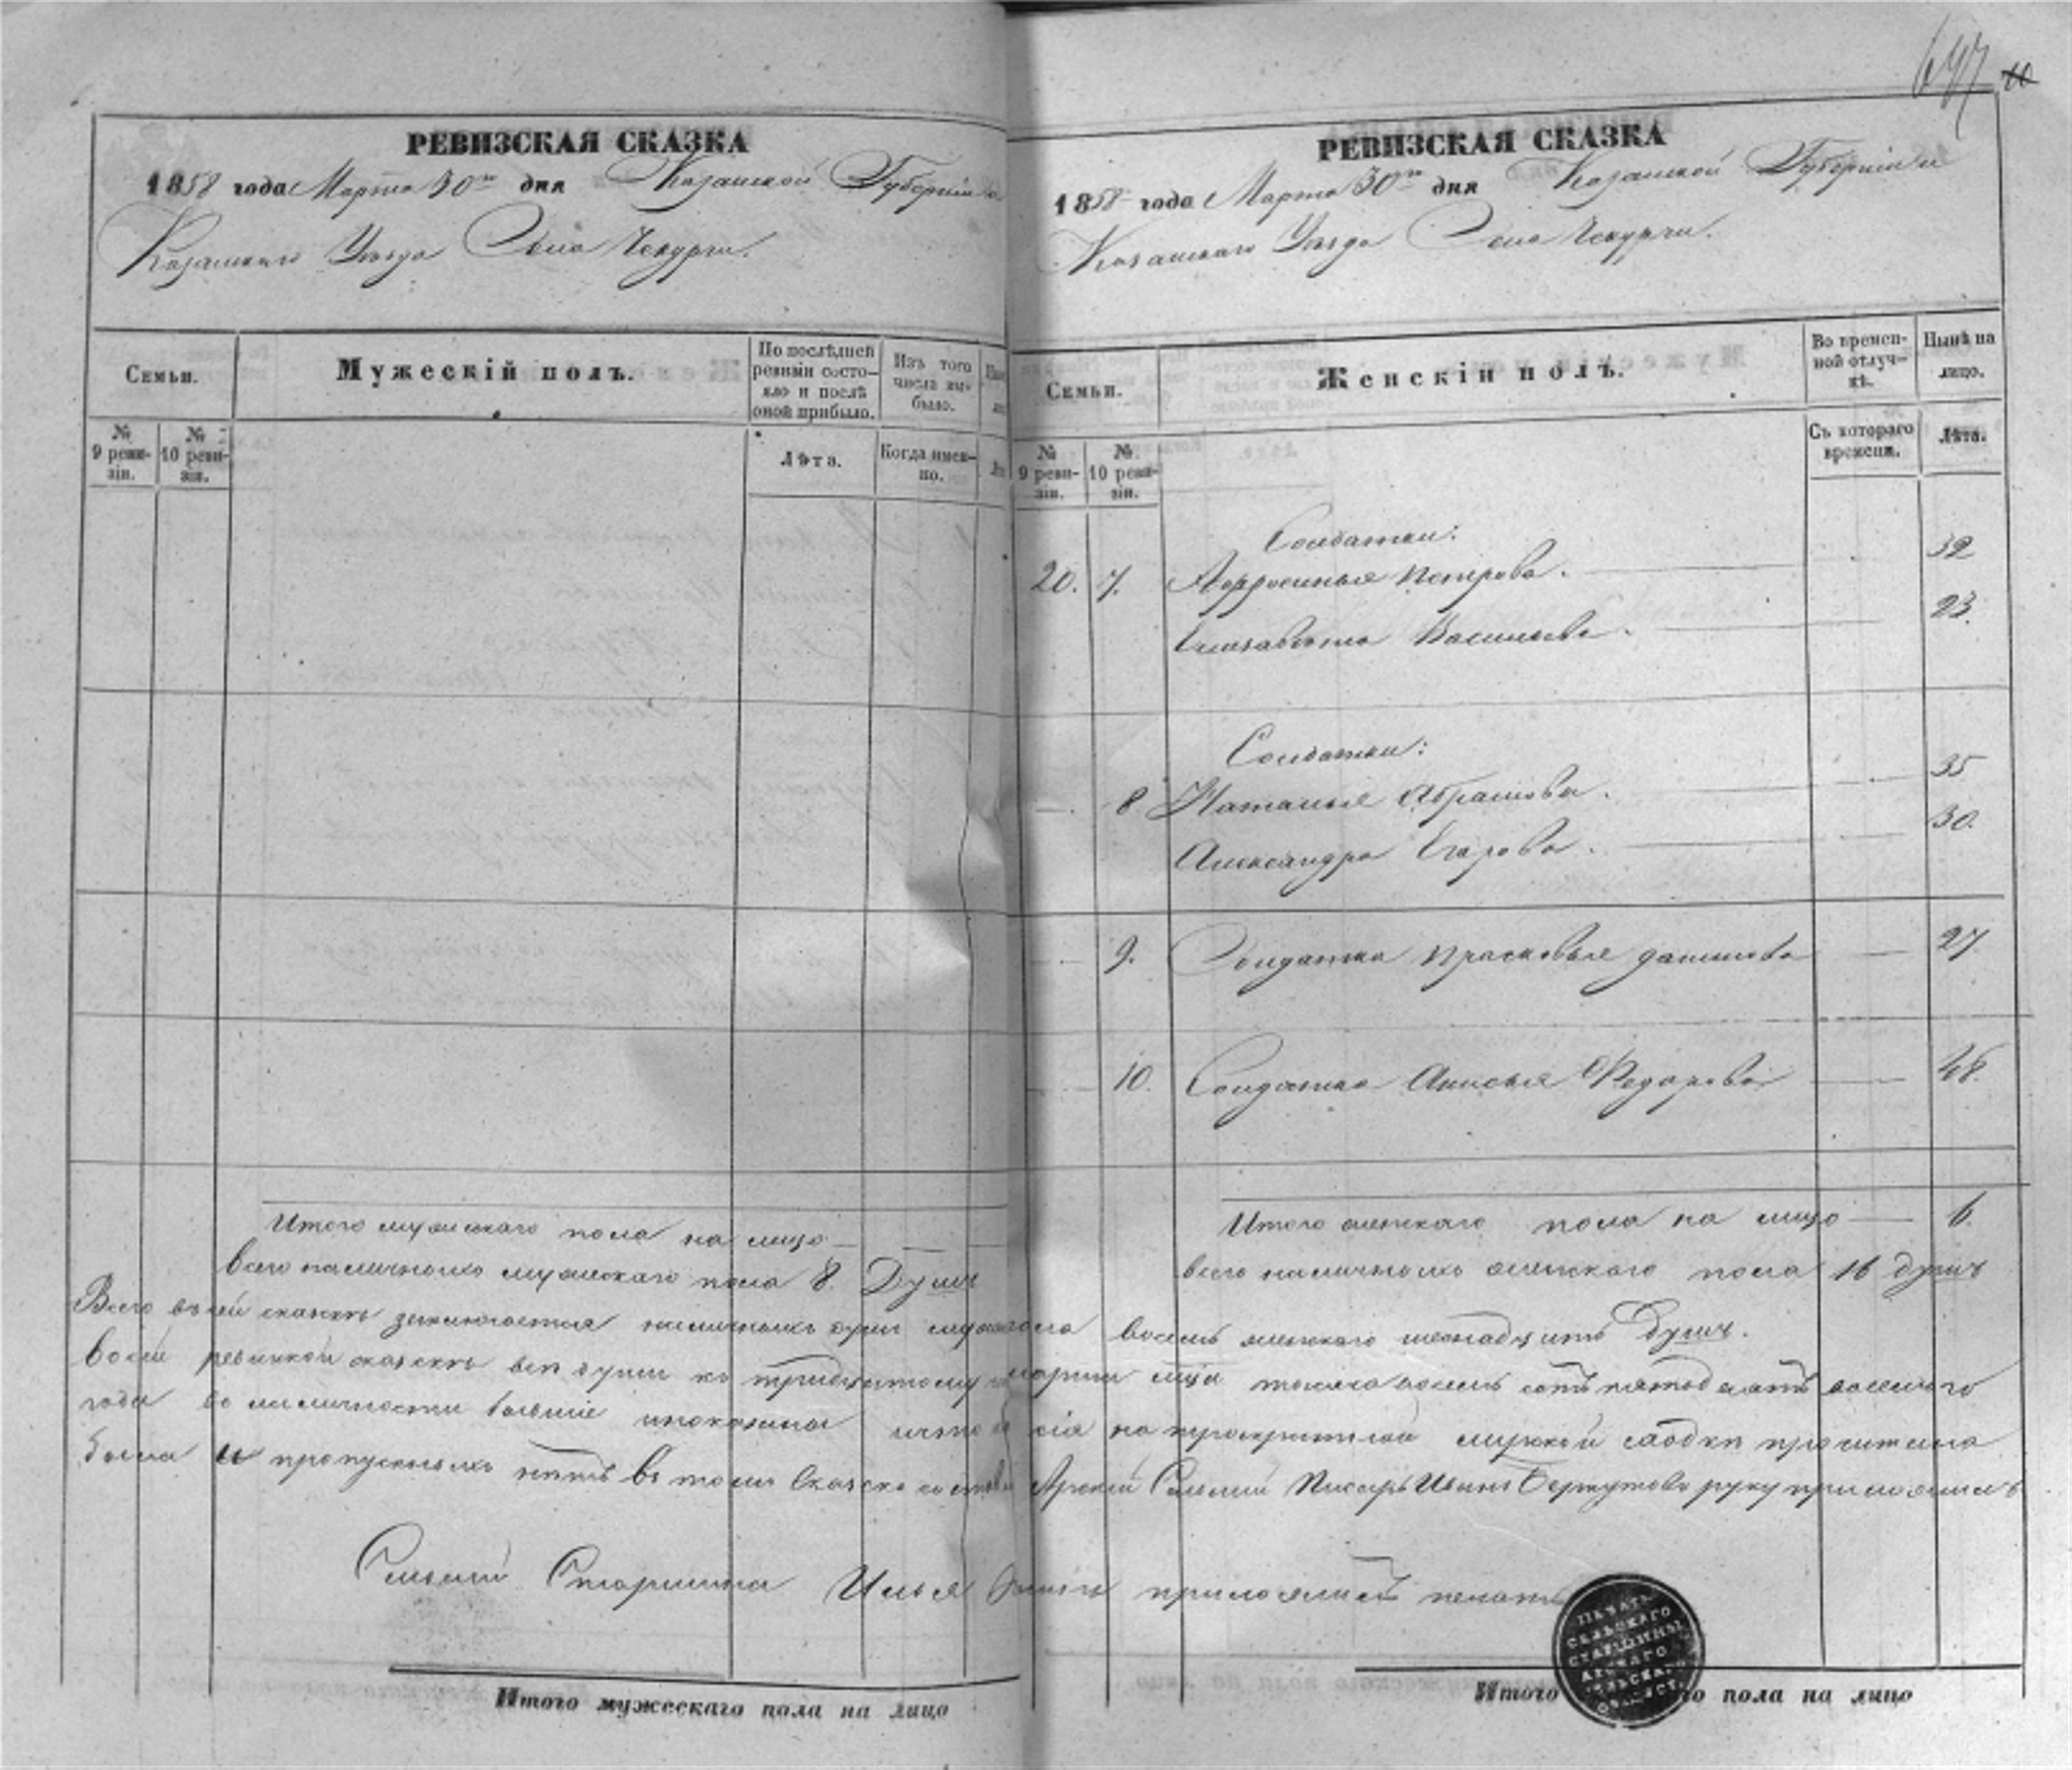 РЕВИЗСКАЯ СКАЗКА
1858 года Марта 30го дня Казанской Губерніи
Казанскаго Уѣзда Села Чекурчи.
Семьи.
Мужескій полъ.
По послѣдней ревизіи состояло и послѣ оной прибыло.
Изъ того числа выбыло.
№ 9 ревизіи.
№ 10 ревизіи.
Лѣта.
Когда именно.
Итого мужескаго пола на лицо
Всего наличныхъ мужескаго пола 8. Душъ
647
РЕВИЗСКАЯ СКАЗКА
1858 года Марта 30го дня Казанской Губерніи и
Казанскаго Уѣзда Села Чекурчи.
Семьи.
Женскій полъ.
Во временной отлучкѣ.
Нынѣ на лицо.
№ 9 ревизіи.
№ 10 ревизіи.
Съ котораго времени.
Лѣта.
Солдатки:
20. 7. Афросинья Петрова. 32
Елизавета Васильева. 23.
Солдатки:
8 Наталья Абрамова. 35
Александра Егорова. 30.
9. Солдатка Прасковья Данилова 27
10. Солдатка Анисья Федорова 48.
Итого женскаго пола на лицо 6.
Всего наличныхъ женскаго пола 16 душъ
Всего въ сей сказкѣ заключается наличныхъ душъ восемь женскаго шестнадцать Душъ.
ревизкой сказкѣ всѣ души къ тридцатому марта тысяча восемь сотъ пятьдесятъ восьмого
года въ наличности бывшіе и показаны и что сія на мирской сходкѣ прочитана
была и пропускныхъ нѣтъ въ томъ Сказку Арскій Сельскій Писарь Иванъ руку приложилъ
Сельскій Старшина Илья приложилъ печать
ПЕЧАТЬ
СЕЛЬСКАГО
СТАРШИНЫ
АРСКАГО
СЕЛЬСКАГО
ОБЩЕСТ.
Итого мужескаго пола на лицо
Итого пола на лицо